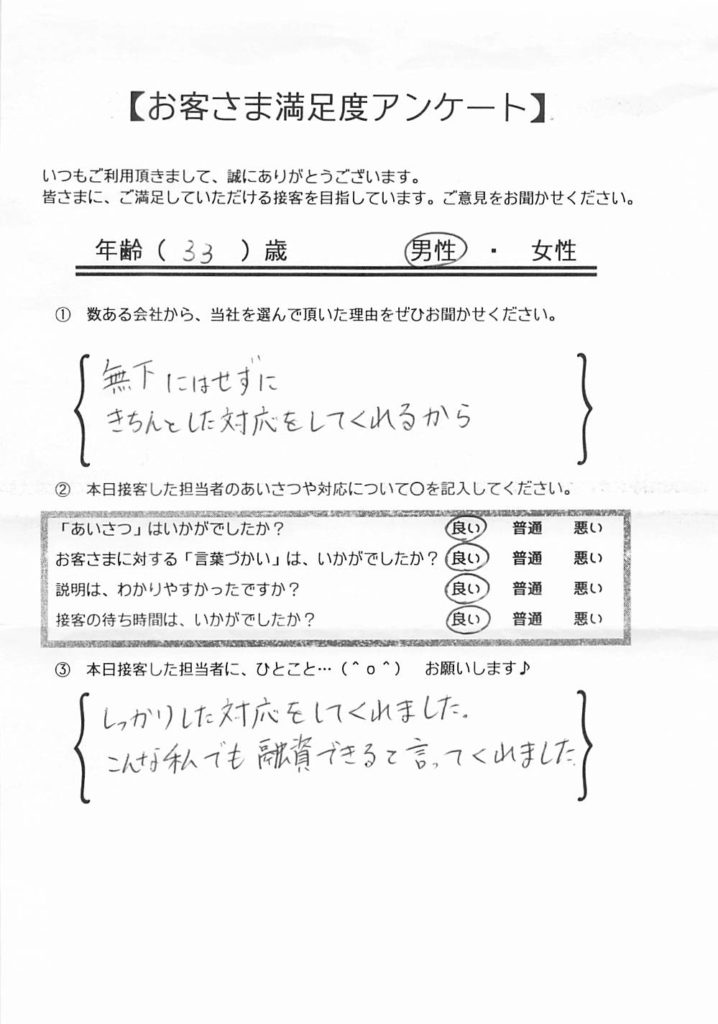 【お客さま満足度アンケート】
いつもご利用頂きまして、誠にありがとうございます。
皆さまに、ご満足していただける接客を目指しています。ご意見をお聞かせください。
年齢（ 33 ）歳　男性 ・ 女性
① 数ある会社から、当社を選んで頂いた理由をぜひお聞かせください。
無下にはせずに
きちんとした対応をしてくれるから
② 本日接客した担当者のあいさつや対応について〇を記入してください。
「あいさつ」はいかがでしたか？ 良い 普通 悪い
お客さまに対する「言葉づかい」は、いかがでしたか？ 良い 普通 悪い
説明は、わかりやすかったですか？ 良い 普通 悪い
接客の待ち時間は、いかがでしたか？ 良い 普通 悪い
③ 本日接客した担当者に、ひとこと…（＾ｏ＾） お願いします♪
しっかりした対応をしてくれました。
こんな私でも融資できると言ってくれました